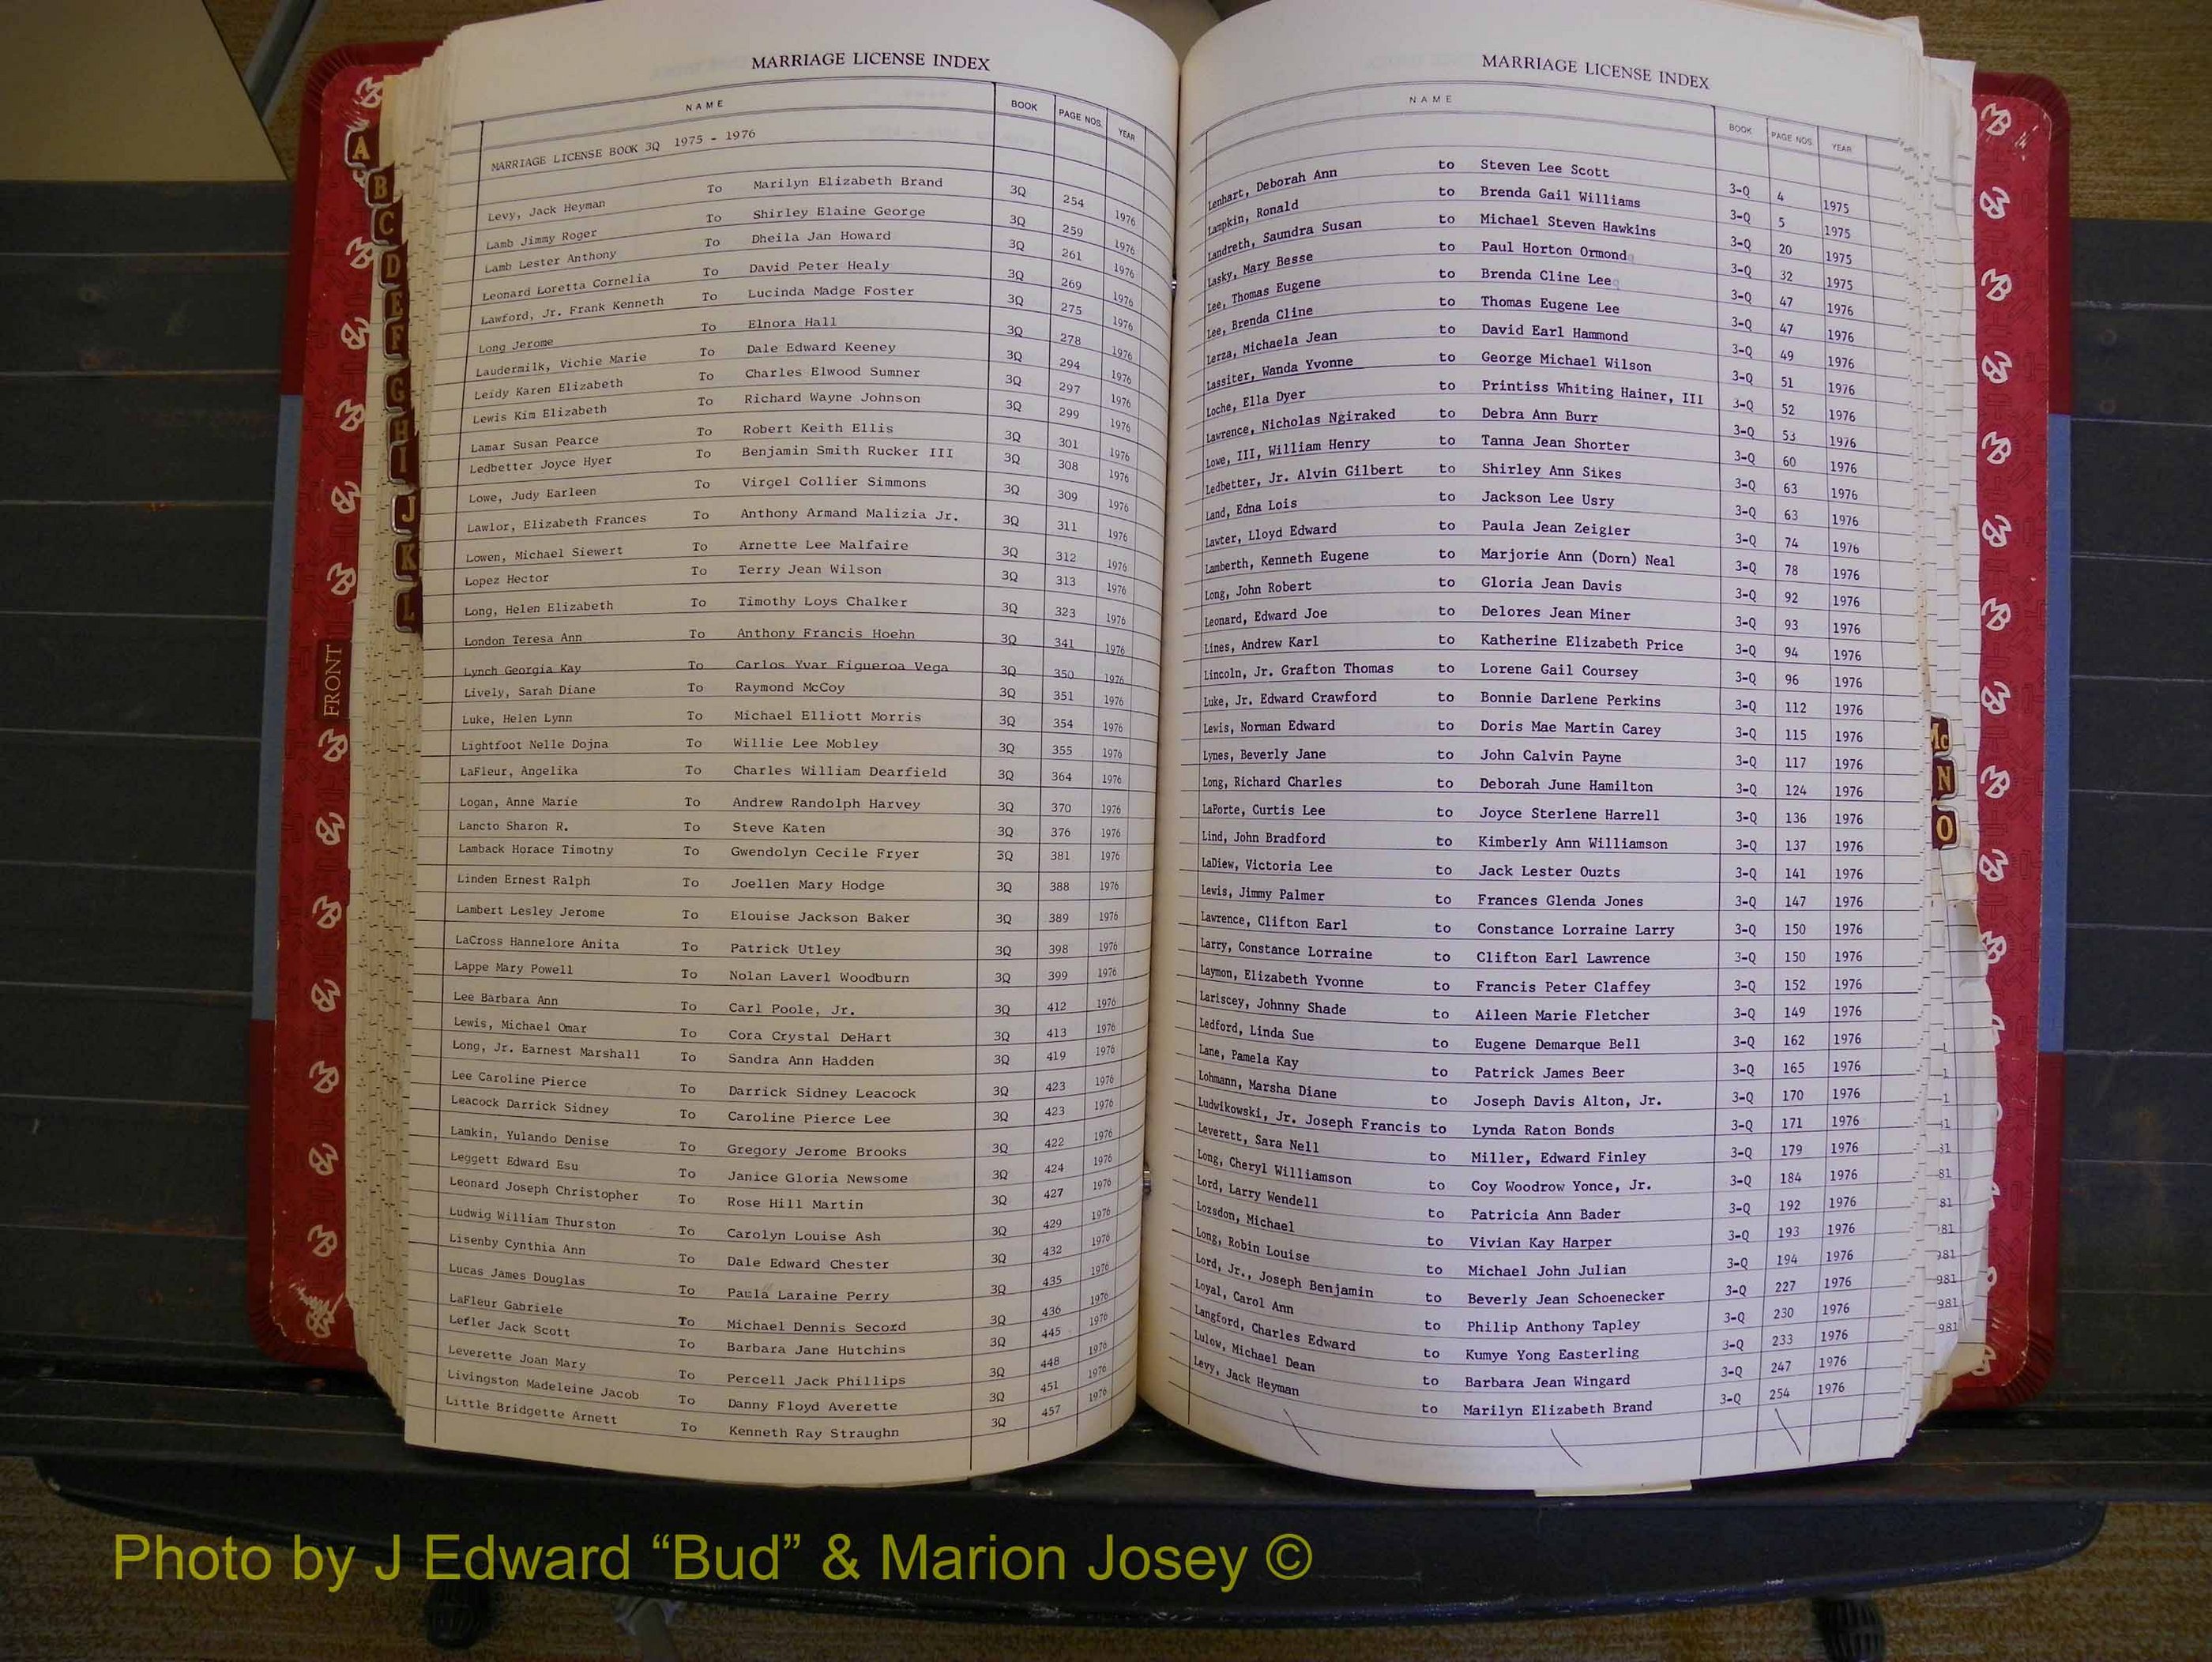 MARRIAGE LICENSE INDEX
NAME BOOK PAGE NOS. YEAR
MARRIAGE LICENSE BOOK 3Q 1975 - 1976
Levy, Jack Heyman To Marilyn Elizabeth Brand 3Q 254 1976
Lamb Jimmy Roger To Shirley Elaine George 3Q 259 1976
Lamb Lester Anthony To Dheila Jan Howard 3Q 261 1976
Leonard Loretta Cornelia To David Peter Healy 3Q 269 1976
Lawford, Jr. Frank Kenneth To Lucinda Madge Foster 3Q 275 1976
Long Jerome To Elnora Hall 3Q 278 1976
Laudermilk, Vichie Marie To Dale Edward Keeney 3Q 294 1976
Leidy Karen Elizabeth To Charles Elwood Sumner 3Q 297 1976
Lewis Kim Elizabeth To Richard Wayne Johnson 3Q 299 1976
Lamar Susan Pearce To Robert Keith Ellis 3Q 301 1976
Ledbetter Joyce Hyer To Benjamin Smith Rucker III 3Q 308 1976
Lowe, Judy Earleen To Virgel Collier Simmons 3Q 309 1976
Lawlor, Elizabeth Frances To Anthony Armand Malizia Jr. 3Q 311 1976
Lowen, Michael Siewert To Arnette Lee Malfaire 3Q 312 1976
Lopez Hector To Terry Jean Wilson 3Q 313 1976
Long, Helen Elizabeth To Timothy Loys Chalker 3Q 323 1976
London Teresa Ann To Anthony Francis Hoehn 3Q 341 1976
Lynch Georgia Kay To Carlos Yvar Figueroa Vega 3Q 350 1976
Lively, Sarah Diane To Raymond McCoy 3Q 351 1976
Luke, Helen Lynn To Michael Elliott Morris 3Q 354 1976
Lightfoot Nelle Dojna To Willie Lee Mobley 3Q 355 1976
LaFleur, Angelika To Charles William Dearfield 3Q 364 1976
Logan, Anne Marie To Andrew Randolph Harvey 3Q 370 1976
Lancto Sharon R. To Steve Katen 3Q 376 1976
Lamback Horace Timotny To Gwendolyn Cecile Fryer 3Q 381 1976
Linden Ernest Ralph To Joellen Mary Hodge 3Q 388 1976
Lambert Lesley Jerome To Elouise Jackson Baker 3Q 389 1976
LaCross Hannelore Anita To Patrick Utley 3Q 398 1976
Lappe Mary Powell To Nolan Laverl Woodburn 3Q 399 1976
Lee Barbara Ann To Carl Poole, Jr. 3Q 412 1976
Lewis, Michael Omar To Cora Crystal DeHart 3Q 413 1976
Long, Jr. Earnest Marshall To Sandra Ann Hadden 3Q 419 1976
Lee Caroline Pierce To Darrick Sidney Leacock 3Q 423 1976
Leacock Darrick Sidney To Caroline Pierce Lee 3Q 423 1976
Lamkin, Yulando Denise To Gregory Jerome Brooks 3Q 422 1976
Leggett Edward Esu To Janice Gloria Newsome 3Q 424 1976
Leonard Joseph Christopher To Rose Hill Martin 3Q 427 1976
Ludwig William Thurston To Carolyn Louise Ash 3Q 429 1976
Lisenby Cynthia Ann To Dale Edward Chester 3Q 432 1976
Lucas James Douglas To Paula Laraine Perry 3Q 435 1976
LaFleur Gabriele To Michael Dennis Secord 3Q 436 1976
Lefler Jack Scott To Barbara Jane Hutchins 3Q 445 1976
Leverette Joan Mary To Percell Jack Phillips 3Q 448 1976
Livingston Madeleine Jacob To Danny Floyd Averette 3Q 451 1976
Little Bridgette Arnett To Kenneth Ray Straughn 3Q 457 1976
MARRIAGE LICENSE INDEX
NAME BOOK PAGE NOS. YEAR
Lenhart, Deborah Ann to Steven Lee Scott 3-Q 4 1975
Lampkin, Ronald to Brenda Gail Williams 3-Q 5 1975
Landreth, Saundra Susan to Michael Steven Hawkins 3-Q 20 1975
Lasky, Mary Besse to Paul Horton Ormond 3-Q 32 1975
Lee, Thomas Eugene to Brenda Cline Lee 3-Q 47 1976
Lee, Brenda Cline to Thomas Eugene Lee 3-Q 47 1976
Lerza, Michaela Jean to David Earl Hammond 3-Q 49 1976
Lassiter, Wanda Yvonne to George Michael Wilson 3-Q 51 1976
Loche, Ella Dyer to Printiss Whiting Hainer, III 3-Q 52 1976
Lawrence, Nicholas Ngiraked to Debra Ann Burr 3-Q 53 1976
Lowe, III, William Henry to Tanna Jean Shorter 3-Q 60 1976
Ledbetter, Jr. Alvin Gilbert to Shirley Ann Sikes 3-Q 63 1976
Land, Edna Lois to Jackson Lee Usry 3-Q 63 1976
Lawter, Lloyd Edward to Paula Jean Zeigler 3-Q 74 1976
Lamberth, Kenneth Eugene to Marjorie Ann (Dorn) Neal 3-Q 78 1976
Long, John Robert to Gloria Jean Davis 3-Q 92 1976
Leonard, Edward Joe to Delores Jean Miner 3-Q 93 1976
Lines, Andrew Karl to Katherine Elizabeth Price 3-Q 94 1976
Lincoln, Jr. Grafton Thomas to Lorene Gail Coursey 3-Q 96 1976
Luke, Jr. Edward Crawford to Bonnie Darlene Perkins 3-Q 112 1976
Lewis, Norman Edward to Doris Mae Martin Carey 3-Q 115 1976
Lynes, Beverly Jane to John Calvin Payne 3-Q 117 1976
Long, Richard Charles to Deborah June Hamilton 3-Q 124 1976
LaPorte, Curtis Lee to Joyce Sterlene Harrell 3-Q 136 1976
Lind, John Bradford to Kimberly Ann Williamson 3-Q 137 1976
LaDiew, Victoria Lee to Jack Lester Ouzts 3-Q 141 1976
Lewis, Jimmy Palmer to Frances Glenda Jones 3-Q 147 1976
Lawrence, Clifton Earl to Constance Lorraine Larry 3-Q 150 1976
Larry, Constance Lorraine to Clifton Earl Lawrence 3-Q 150 1976
Laymon, Elizabeth Yvonne to Francis Peter Claffey 3-Q 152 1976
Lariscey, Johnny Shade to Aileen Marie Fletcher 3-Q 149 1976
Ledford, Linda Sue to Eugene Demarque Bell 3-Q 162 1976
Lane, Pamela Kay to Patrick James Beer 3-Q 165 1976
Lohmann, Marsha Diane to Joseph Davis Alton, Jr. 3-Q 170 1976
Ludwikowski, Jr. Joseph Francis to Lynda Raton Bonds 3-Q 171 1976
Leverett, Sara Nell to Miller, Edward Finley 3-Q 179 1976
Long, Cheryl Williamson to Coy Woodrow Yonce, Jr. 3-Q 184 1976
Lord, Larry Wendell to Patricia Ann Bader 3-Q 192 1976
Lozsdon, Michael to Vivian Kay Harper 3-Q 193 1976
Long, Robin Louise to Michael John Julian 3-Q 194 1976
Lord, Jr., Joseph Benjamin to Beverly Jean Schoenecker 3-Q 227 1976
Loyal, Carol Ann to Philip Anthony Tapley 3-Q 230 1976
Langford, Charles Edward to Kumye Yong Easterling 3-Q 233 1976
Lulow, Michael Dean to Barbara Jean Wingard 3-Q 247 1976
Levy, Jack Heyman to Marilyn Elizabeth Brand 3-Q 254 1976
A
B
C
D
E
F
G
H
I
J
K
L
FRONT
Mc
N
O
81
81
81
981
981
981
Photo by J Edward “Bud” & Marion Josey ©